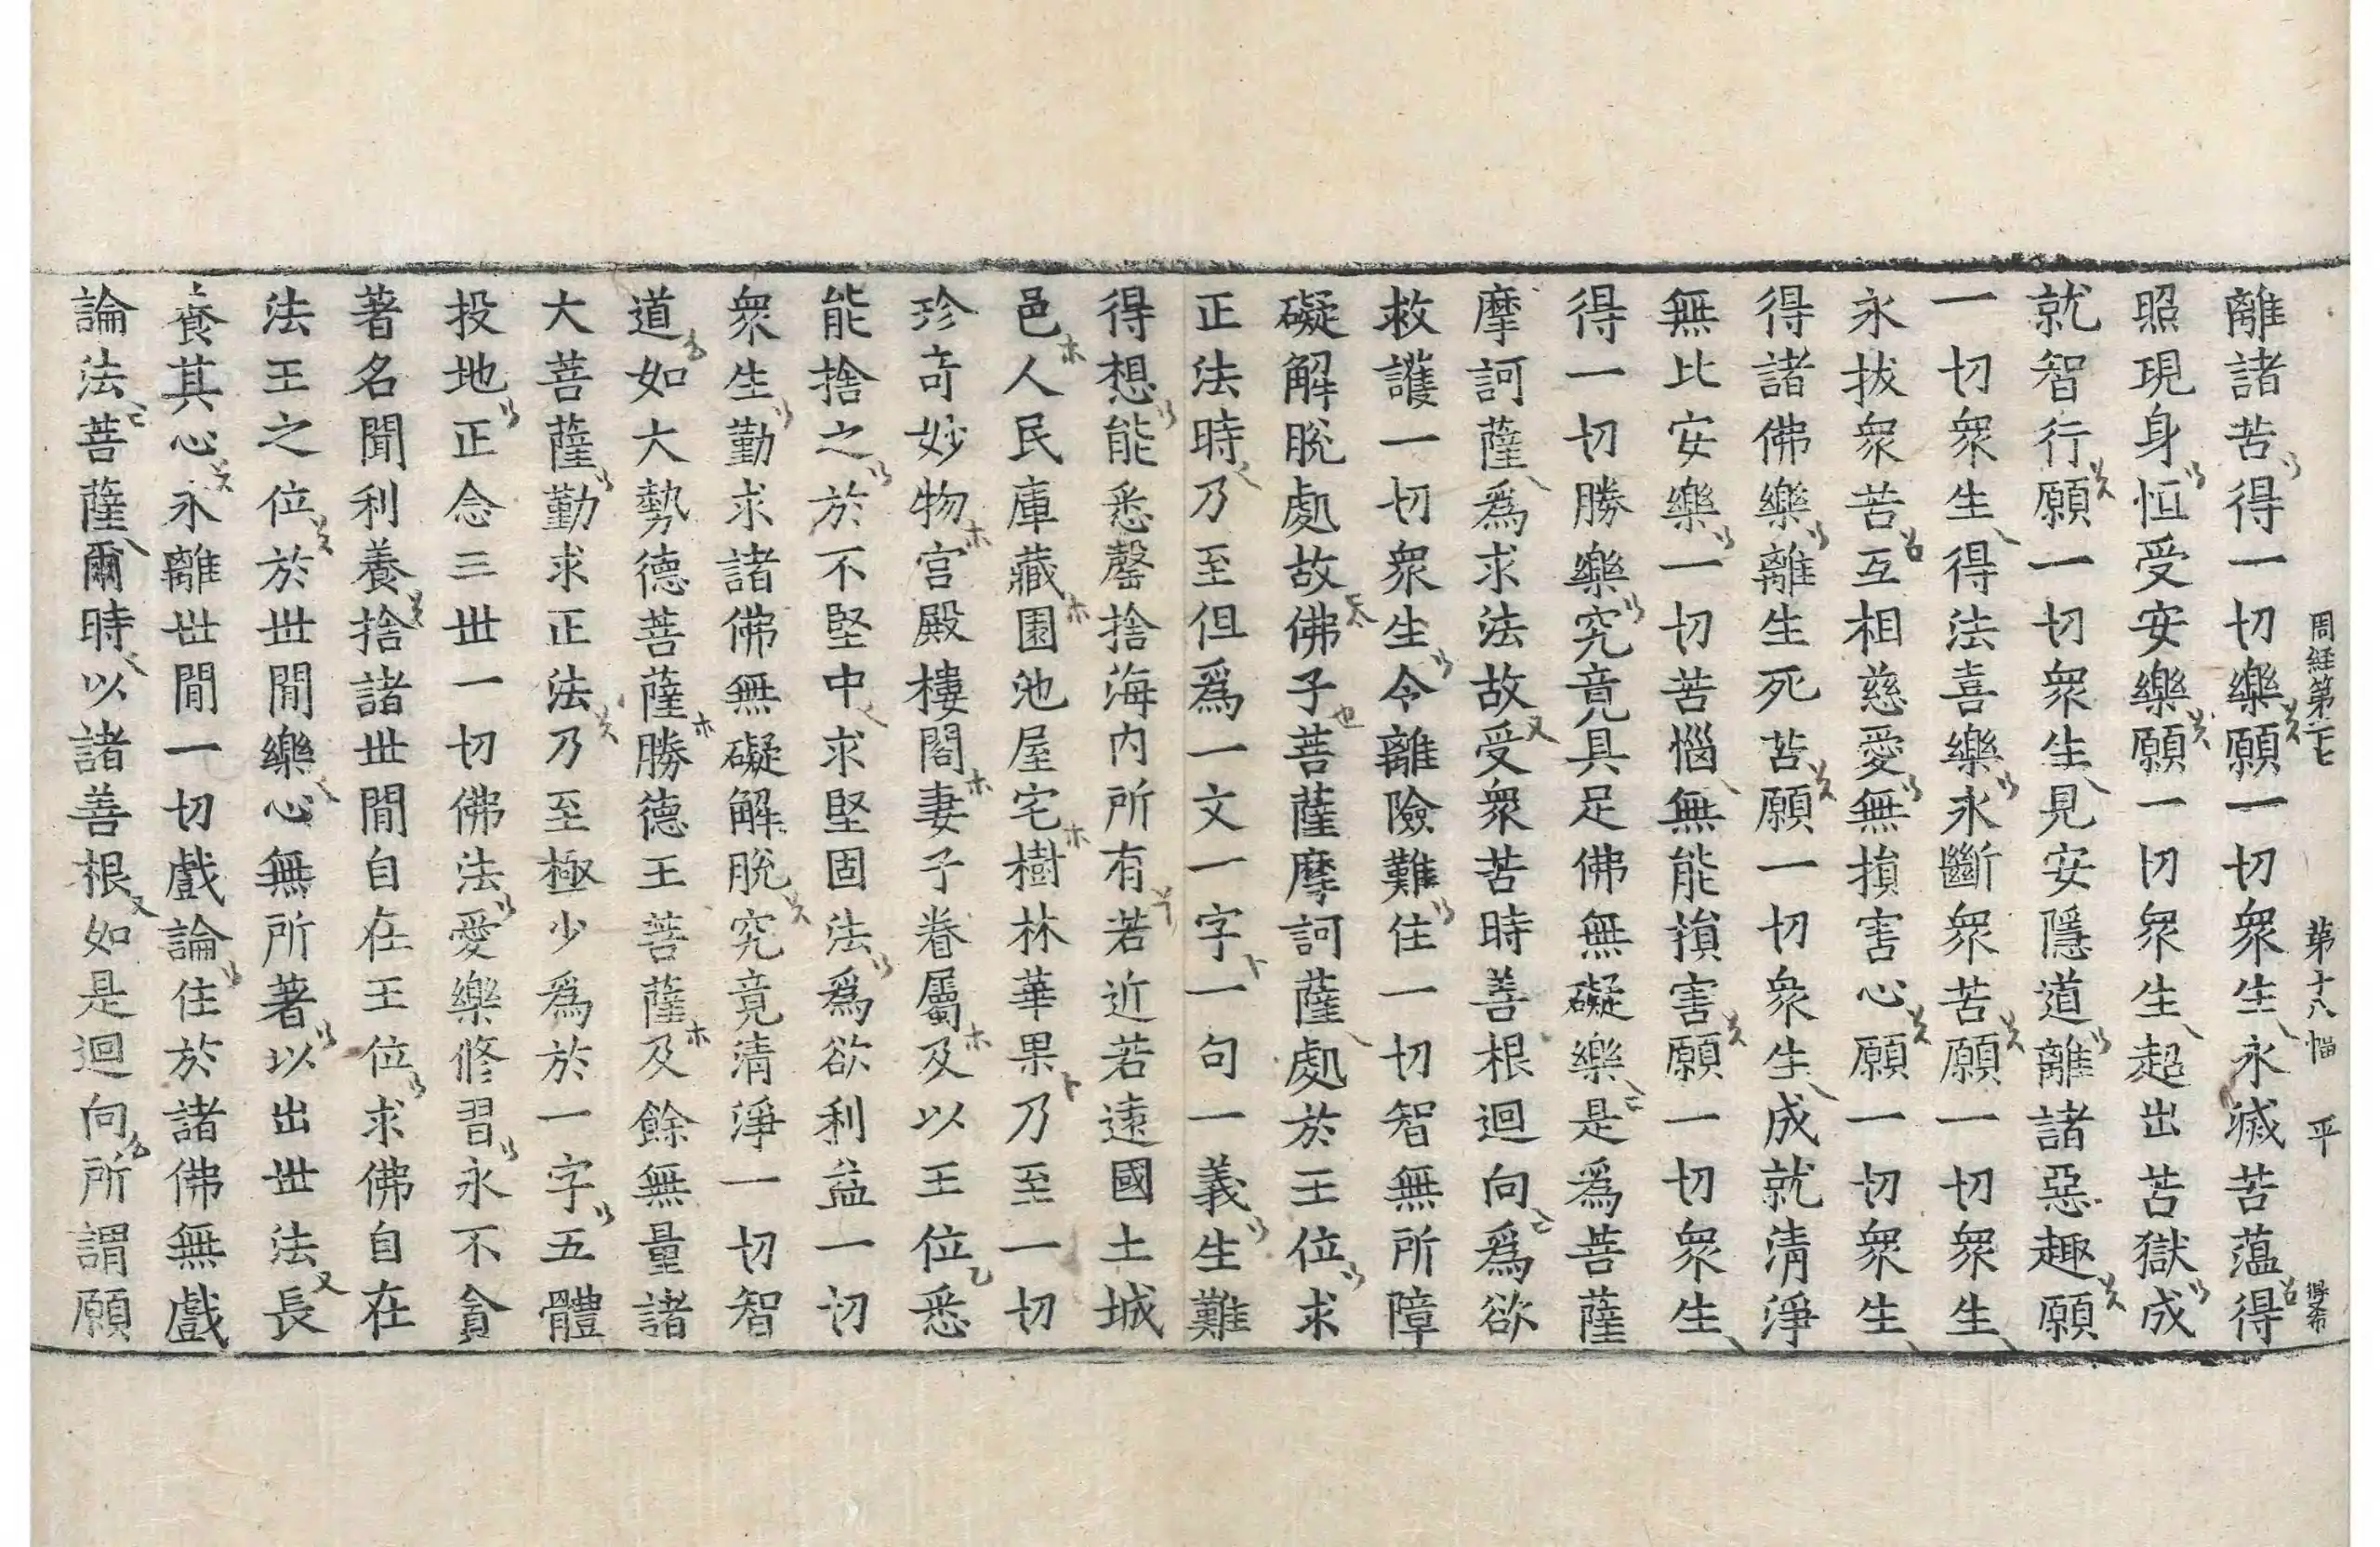 周經第二七 第十八幅 平 得希
離諸苦得一切樂願一切衆生永滅苦蘊得
照現身恒受安樂願一切衆生起出苦獄成
就智行願一切衆生見安隱道離諸惡趣願
一切衆生得法喜樂永斷衆苦願一切衆生
永拔衆苦互相慈愛無損害心願一切衆生
得諸佛樂離生死苦願一切衆生成就清淨
無比安樂一切苦惱無能損害願一切衆生
得一切勝樂究竟具足佛無礙樂是爲菩薩
摩訶薩爲求法故受衆苦時善根迴向爲欲
救護一切衆生令離險難住一切智無所障
礙解脫處故佛子菩薩摩訶薩處於王位求
正法時乃至但爲一文一字一句一義生難
得想能悉罄捨海內所有若近若遠國土城
邑人民庫藏園池屋宅樹林華果乃至一切
珍奇妙物宮殿樓閣妻子眷屬及以王位悉
能捨之於不堅中求堅固法爲欲利益一切
衆生勤求諸佛無礙解脫究竟清淨一切智
道如大勢德菩薩勝德王菩薩及餘無量諸
大菩薩勤求正法乃至極少爲於一字五體
投地正念三世一切佛法愛樂修習永不貪
著名聞利養捨諸世間自在王位求佛自在
法王之位於世間樂心無所著以出世法長
養其心永離世間一切戲論住於諸佛無戲
論法菩薩爾時以諸善根如是迴向所謂願